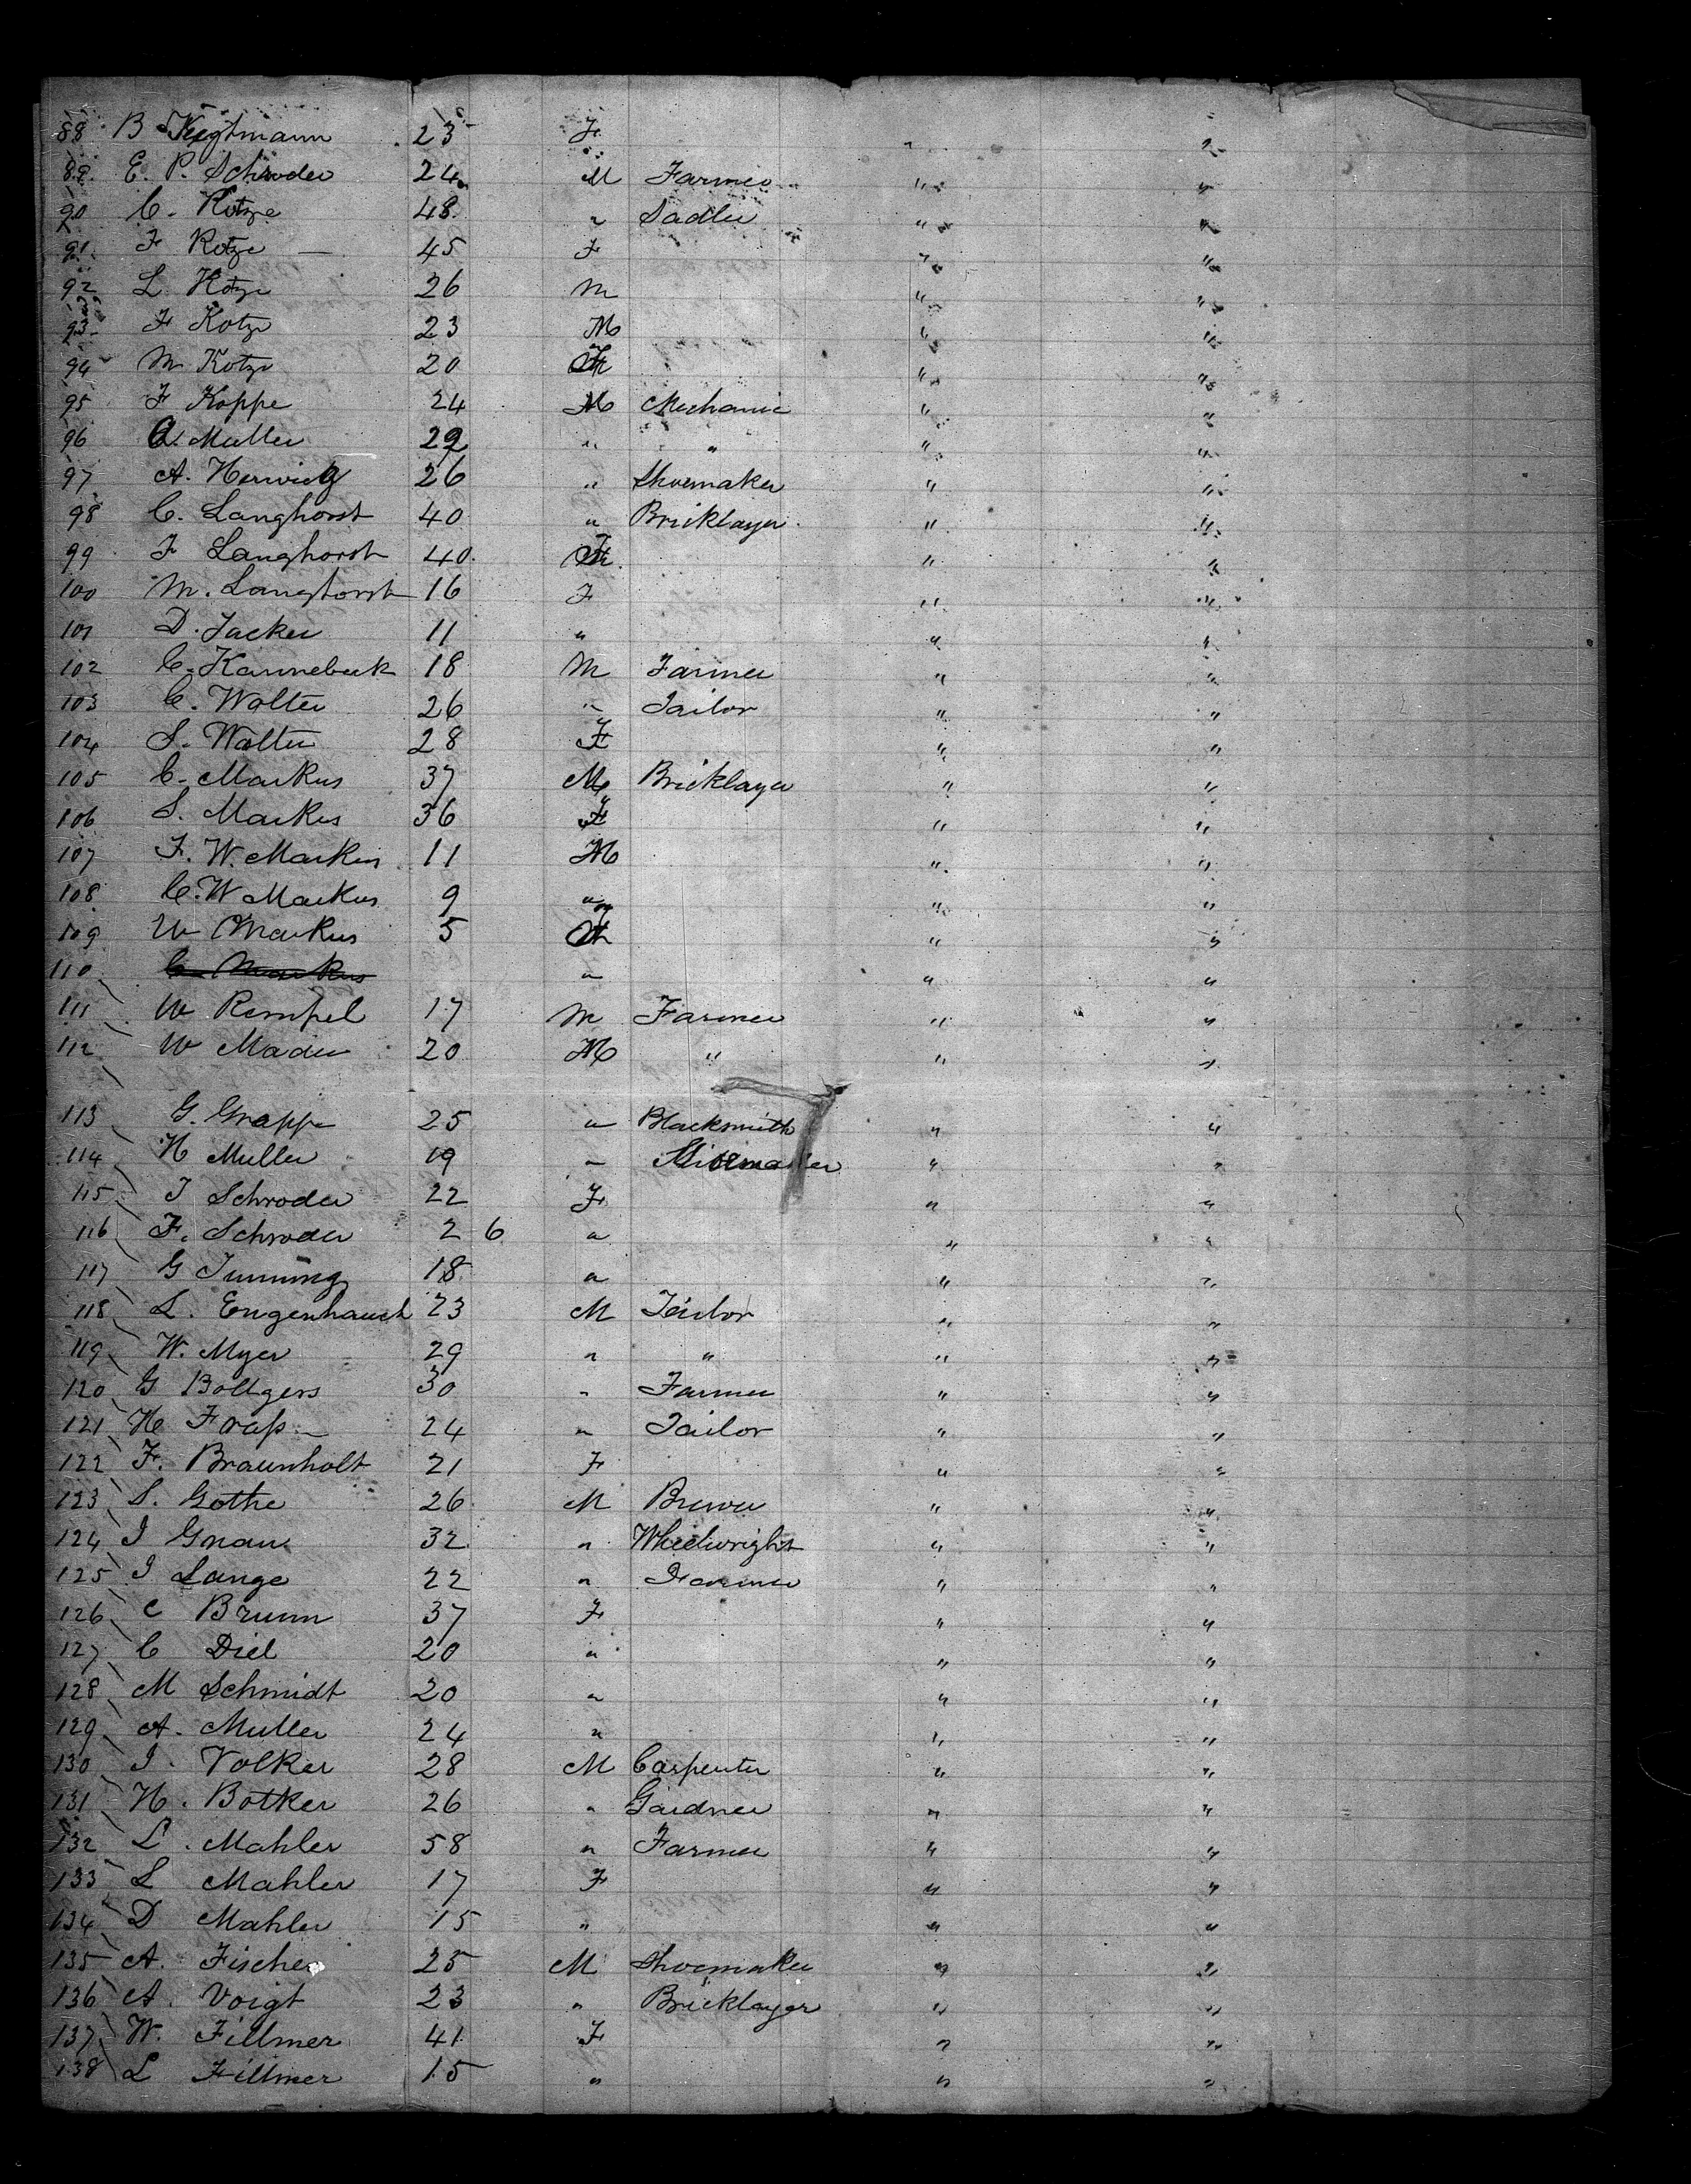 88 B 23 F " "
89 E. P. Schroder 24 M Farmer " "
90 C. Kotze 48 " Sadler " "
91 F Kotze — 45 F " "
92 L. Kotze 26 M " "
93 F Kotze 23 M " "
94 M Kotze 20 F " "
95 F Koppe 24 M Mechanic " "
96 Muller 29 " " " "
97 A. Herwig 26 " Shoemaker " "
98 C. Langhorst 40 " Bricklayer " "
99 F Langhorst 40 F " "
100 M. Langhorst 16 F " "
101 D. 11 " " "
102 C. Kannebeck 18 M Farmer " "
103 C. Wolter 26 " Tailor " "
104 S. Wolter 28 F " "
105 C. Markus 37 M Bricklayer " "
106 S. Markus 36 F " "
107 F. W. Markus 11 M " "
108 C. W Markus 9 " " "
109 W Markus 5 " "
110 C Markus " " "
111 W Rempel 17 M Farmer " "
112 W Mader 20 M " " "
113 G. Grappe 25 " Blacksmith " "
114 H Muller 19 " Shoemaker " "
115 J Schroder 22 F " "
116 F. Schroder 26 " " "
117 G 18 " " "
118 L. Engenhauch 23 M Tailor " "
119 W. Myer 29 " " " "
120 G Boltgers 30 " Farmer " "
121 H Frass — 24 " Tailor " "
122 F. Braunholt 21 F " "
123 S. Gothe 26 M Brewer " "
124 J Gnau 32 " Wheelwright " "
125 J Lange 22 " Farmer " "
126 C Brunn 37 F " "
127 C Diel 20 " " "
128 M Schmidt 20 " " "
129 A. Muller 24 " " "
130 J. Volker 28 M Carpenter " "
131 H. Botker 26 " Gardner " "
132 L. Mahler 58 " Farmer " "
133 L Mahler 17 F " "
134 D Mahler 15 " " "
135 A. Fischer 25 M Shoemaker " "
136 A. Voigt 23 " Bricklayer " "
137 W. Fillmer 41 F " "
138 L Fillmer 15 " " "